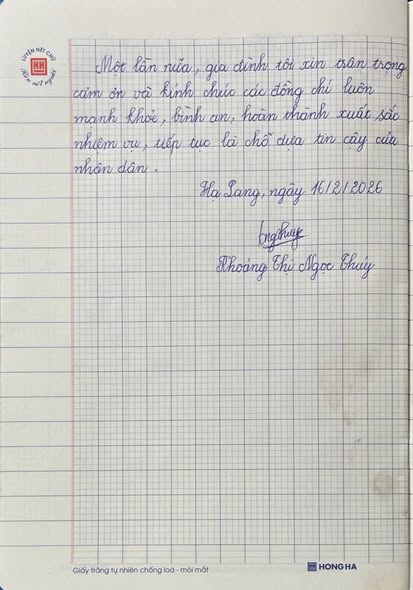 LUYỆN NÉT CHỮ
HH
RÈN NẾT NGƯỜI
Một lần nữa, gia đình tôi xin trân trọng
cảm ơn và kính chúc các đồng chí luôn
mạnh khỏe, bình an, hoàn thành xuất sắc
nhiệm vụ, tiếp tục là chỗ dựa tin cậy của
nhân dân.
Hạ Lang, ngày 16/2/2026
Khoáng Thị Ngọc Thúy
Giấy trắng tự nhiên chống loá - mỏi mắt
HH HONG HA